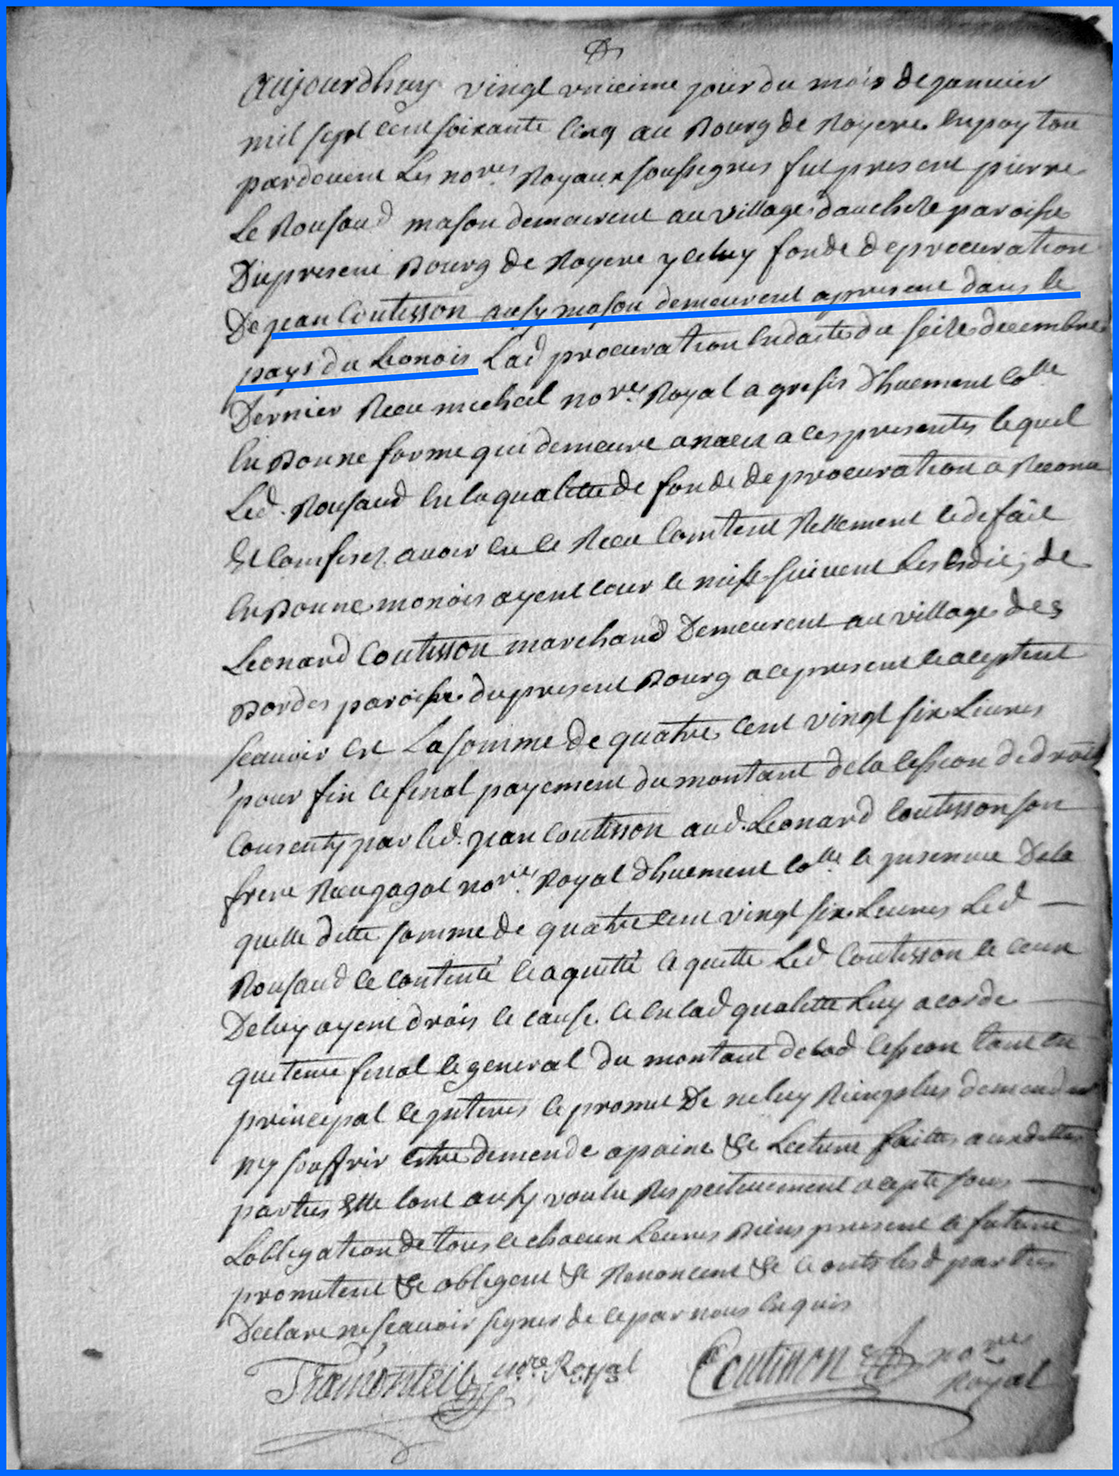 aujourdhuy vingt unieime jour du mois de janvier
mil sept cent soixante cinq au Bourg de Royere en poytou
pardevent les nores Royaux soussignes fut present pierre
Le Rousaud mason demeurent au village dauchese paroisse
Du present Bourg de Royere yceluy fondé de procuration
De jean Coutisson ausy mason demeurent apresent dans le
pays du Lionois Lad procuration en datte du seize decembre
Dernier Receu michel nore Royal a gresis
en Bonne forme qui demeure anexée a ces presentes lequel
Led. Rousaud en la qualitte de fonde de procuration a Reconu
Et comfessé avoir eu et Receu comtent Rellement et de fait
en Bonne monois ayent cour et mise suivent les Edis, de
Leonard Coutisson marchand Demeurent au village des
Bordes paroisse du present Bourg a ce present et aceptent
scavoir est La somme de quatre cent vingt six Livres
pour fin et final payement du montant de la cession de droits
Consenty par led. jean Coutisson aud. Leonard Coutisson son
frere Receu jagot nore Royal le Dela
quelle ditte somme de quatre cent vingt six Livres Led
Rousaud et contenté et aquitté et quitte Led Coutisson et ceux
De luy ayent drois et cause et en lad qualitte Luy acorde
quitence final et general du montant de lad cession tant en
principal et interes et promet De ne luy Rien plus demender
ny souffrir estre demende a paine &c Lecture faitte auxdittes
parties Elle lont ausy voulu Respectivement acepté sous
Lobligation de tous et chacun Leurs Biens present et future
prometent &c obligent &c Renoncent &c et ont lesd parties
Declare ne scavoir signer de ce par nous enquis
nore Royal Coutisson nores
Royal